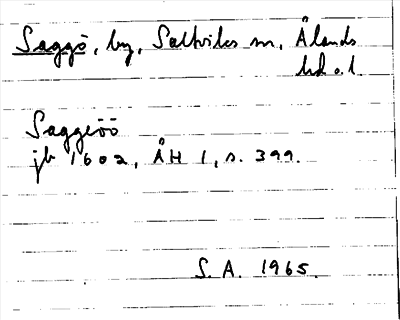 Saggö, by, Saltviks sn, Ålands
hd o. l.
Saggeöö
jb 1602, ÅH 1, s. 399.
S. A. 1965.